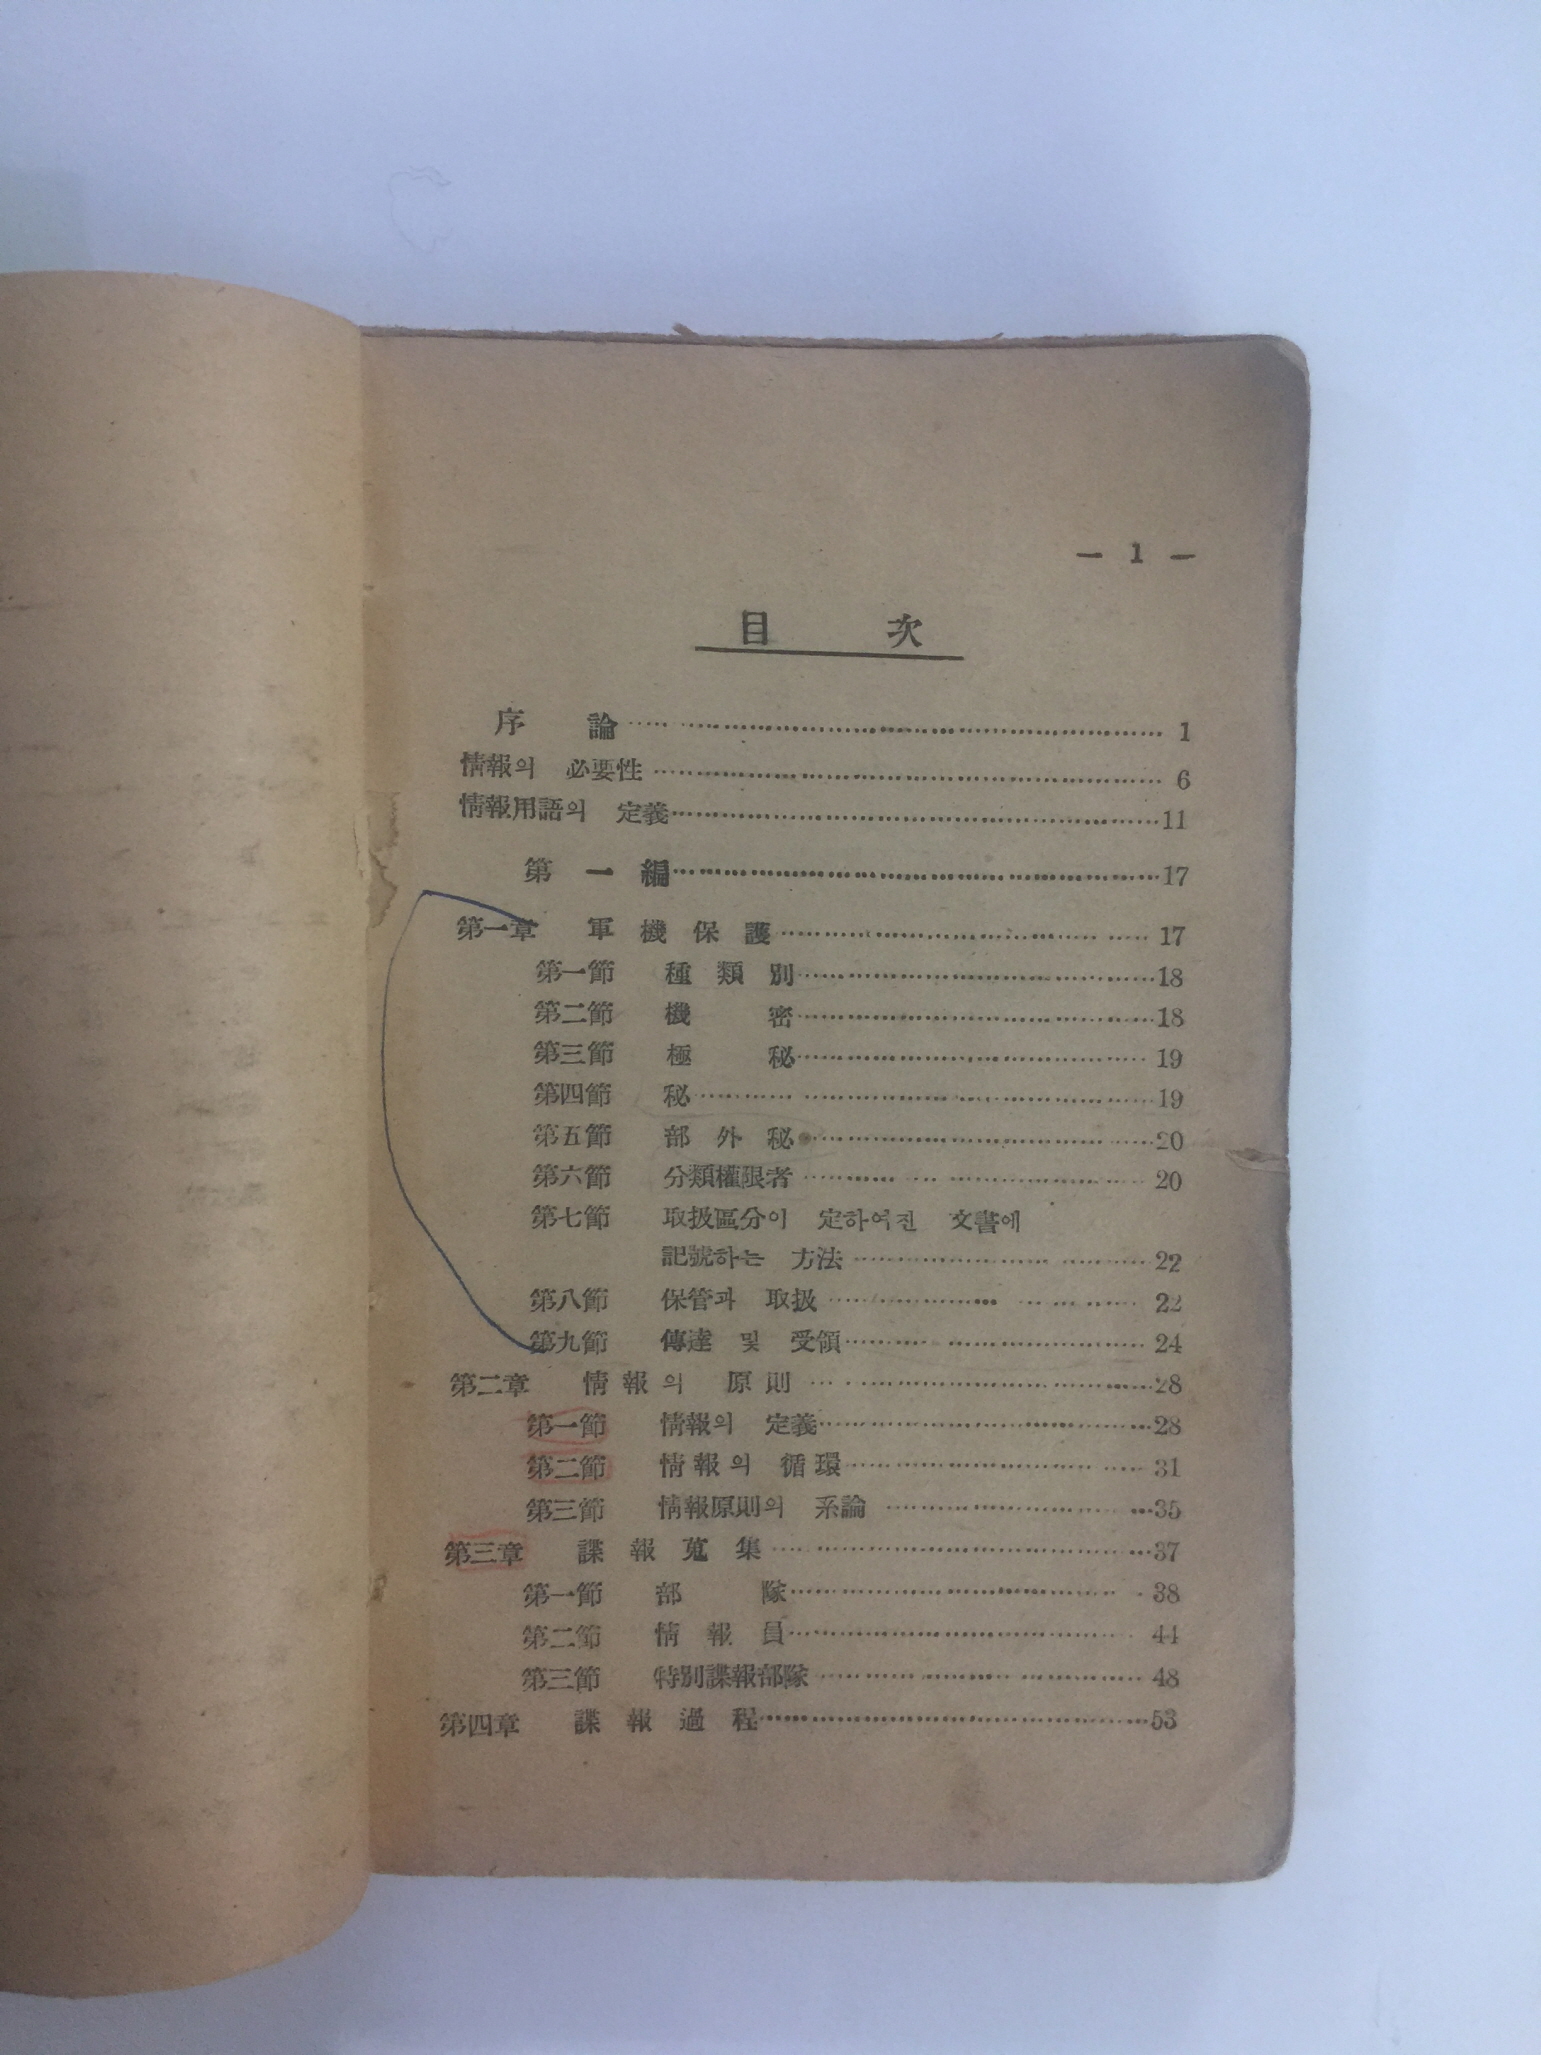 — 1 —
目 次
序 論 1
情報의 必要性 6
情報用語의 定義 11
第一編 17
第一章 軍機保護 17
第一節 種類別 18
第二節 機密 18
第三節 極秘 19
第四節 秘 19
第五節 部外秘 20
第六節 分類權限者 20
第七節 取扱區分이 定하여진 文書에
記號하는 方法 22
第八節 保管과 取扱 22
第九節 傳達 및 受領 24
第二章 情報의 原則 28
第一節 情報의 定義 28
第二節 情報의 循環 31
第三節 情報原則의 系論 35
第三章 諜報蒐集 37
第一節 部隊 38
第二節 情報員 44
第三節 特別諜報部隊 48
第四章 諜報過程 53